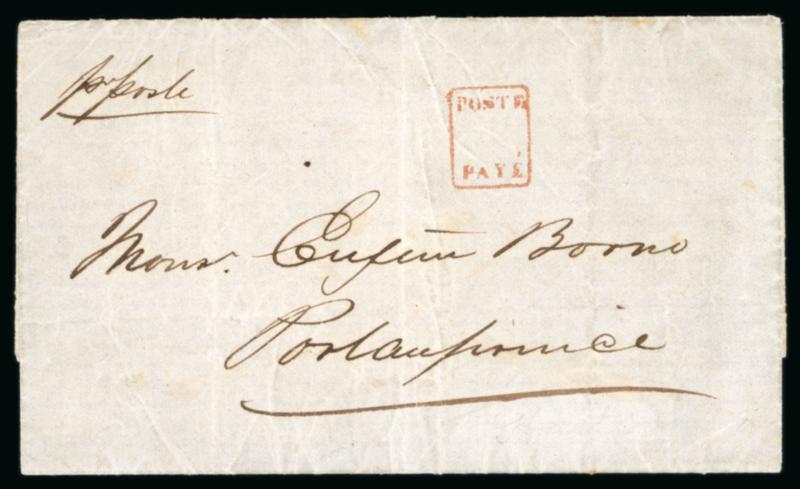 pr poste
POSTE
PAYÉ
Monsr. Eugène Borno
Portauprince